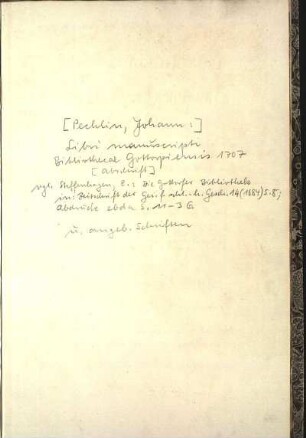 [Pechlin, Johann:]
Libri manuscripti
Bibliothecae Gottorpiensis 1707
[Abschrift]
vgl. Steffenhagen, E.: Die Gottorfer Bibliothek
in: Zeitschrift der Ges. f. schl.-h. Gesch. 14 (1884) S. 8;
Abdruck ebda S. 11-36
u. angeb. Schriften